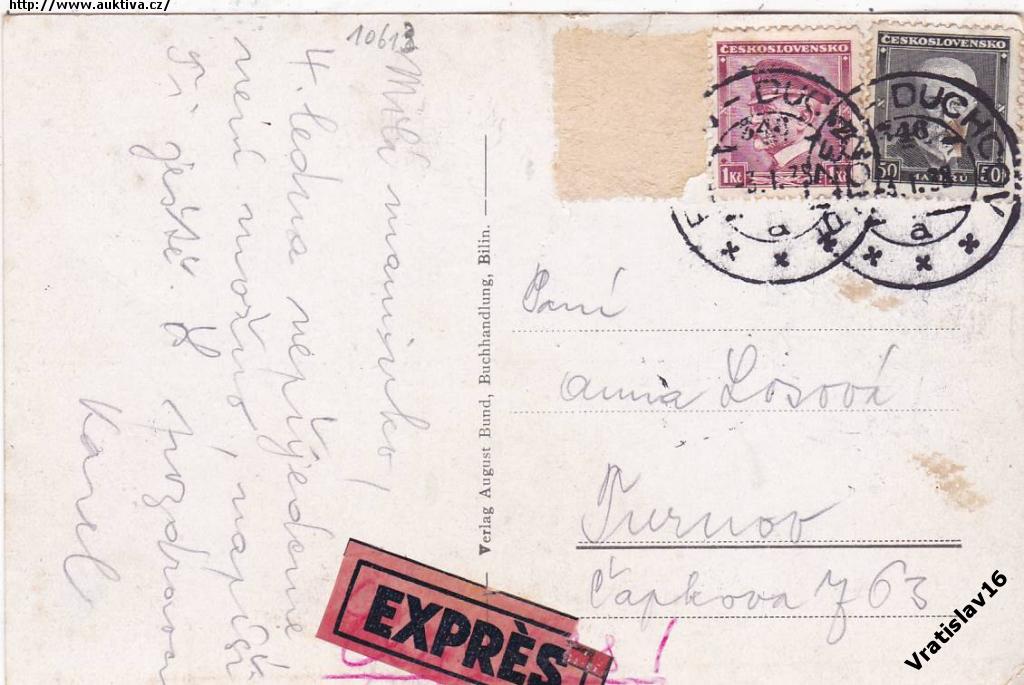 http://www.auktiva.cz/
10613
Milá maminko!
4. ledna nepřijedeme
není možno, napíši
ji ještě. L pozdravem
Karel
Verlag August Bund, Buchhandlung, Bilin.
ČESKOSLOVENSKO
1Kč
ČESKOSLOVENSKO
50
50
DUCHCOV
a
a
Paní
Anna Losová
Turnov
Čapkova 763
EXPRÈS
Vratislav16